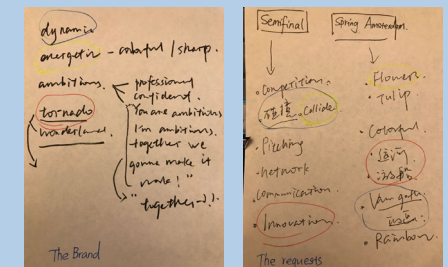 dynamic
energetic - colorful / sharp.
ambitions.
professional
confident.
"You are ambitions
I'm ambitions.
together we
gonna make it
tornado
wonderland.
"together
The Brand
Semifinal
Spring Amsterdam.
• Competition.
碰撞 Collide
Pitching
• network
Communication.
• Innovation.
• Flower.
• Tulip.
• Colorful.
• Van gogh
• Rainbow.
The requests